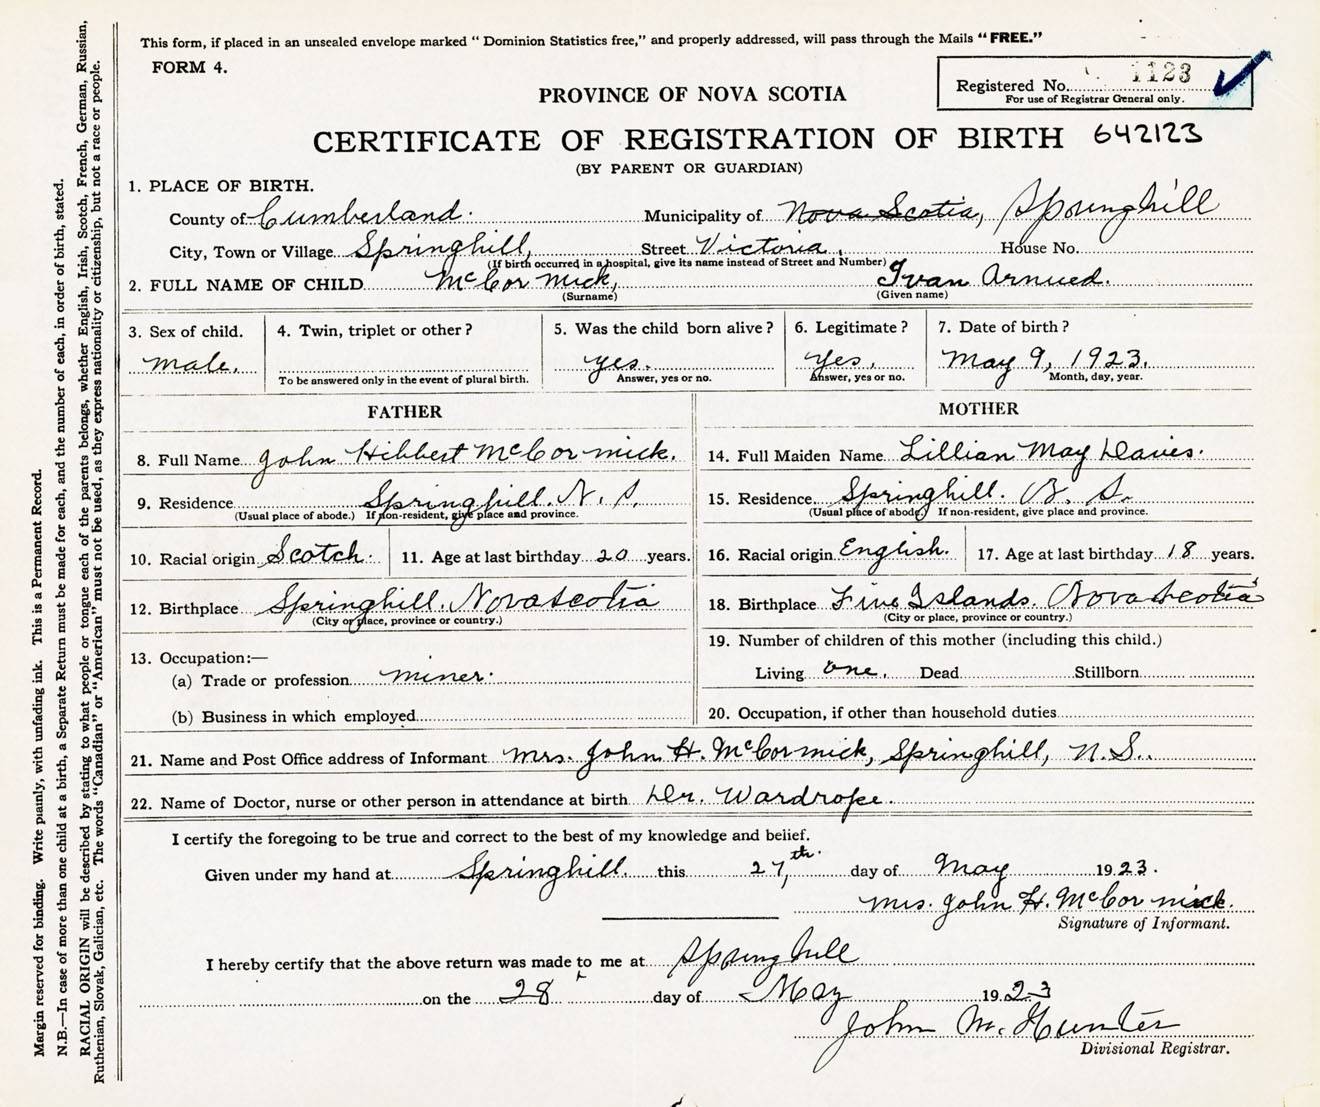 This form, if placed in an unsealed envelope marked “ Dominion Statistics free,” and properly addressed, will pass through the Mails “FREE.”
FORM 4.
Registered No. 1123
For use of Registrar General only.
PROVINCE OF NOVA SCOTIA
CERTIFICATE OF REGISTRATION OF BIRTH 642123
(BY PARENT OR GUARDIAN)
1. PLACE OF BIRTH.
County of Cumberland. Municipality of Nova Scotia, Springhill
City, Town or Village Springhill, Street Victoria. House No.
(If birth occurred in a hospital, give its name instead of Street and Number)
2. FULL NAME OF CHILD McCormick, Ivan Arnued.
(Surname) (Given name)
3. Sex of child. 4. Twin, triplet or other ? 5. Was the child born alive ? 6. Legitimate ? 7. Date of birth ?
male. yes. yes. May 9, 1923.
To be answered only in the event of plural birth. Answer, yes or no. Answer, yes or no. Month, day, year.
FATHER MOTHER
8. Full Name John Hibbert McCormick. 14. Full Maiden Name Lillian May Davies.
9. Residence Springhill. N. S. 15. Residence Springhill. N. S.
(Usual place of abode.) If non-resident, give place and province. (Usual place of abode.) If non-resident, give place and province.
10. Racial origin Scotch. 11. Age at last birthday 20 years. 16. Racial origin English. 17. Age at last birthday 18 years.
12. Birthplace Springhill. Nova Scotia 18. Birthplace Five Islands. Nova Scotia
(City or place, province or country.) (City or place, province or country.)
13. Occupation:— 19. Number of children of this mother (including this child.)
(a) Trade or profession miner. Living one. Dead Stillborn
(b) Business in which employed 20. Occupation, if other than household duties
21. Name and Post Office address of Informant Mrs. John H. McCormick, Springhill, N.S..
22. Name of Doctor, nurse or other person in attendance at birth Dr. Wardrope.
I certify the foregoing to be true and correct to the best of my knowledge and belief.
Given under my hand at Springhill. this 27th. day of May 1923.
Mrs. John H. McCormick.
Signature of Informant.
I hereby certify that the above return was made to me at Springhill
on the 28 day of May 1923
John M. Hunter
Divisional Registrar.
Margin reserved for binding. Write plainly, with unfading ink. This is a Permanent Record.
N.B.—In case of more than one child at a birth, a Separate Return must be made for each, and the number of each, in order of birth, stated.
RACIAL ORIGIN will be described by stating to what people or tongue each of the parents belongs, whether English, Irish, Scotch, French, German, Russian,
Ruthenian, Slovak, Galician, etc. The words “Canadian” or “American” must not be used, as they express nationality or citizenship, but not a race or people.